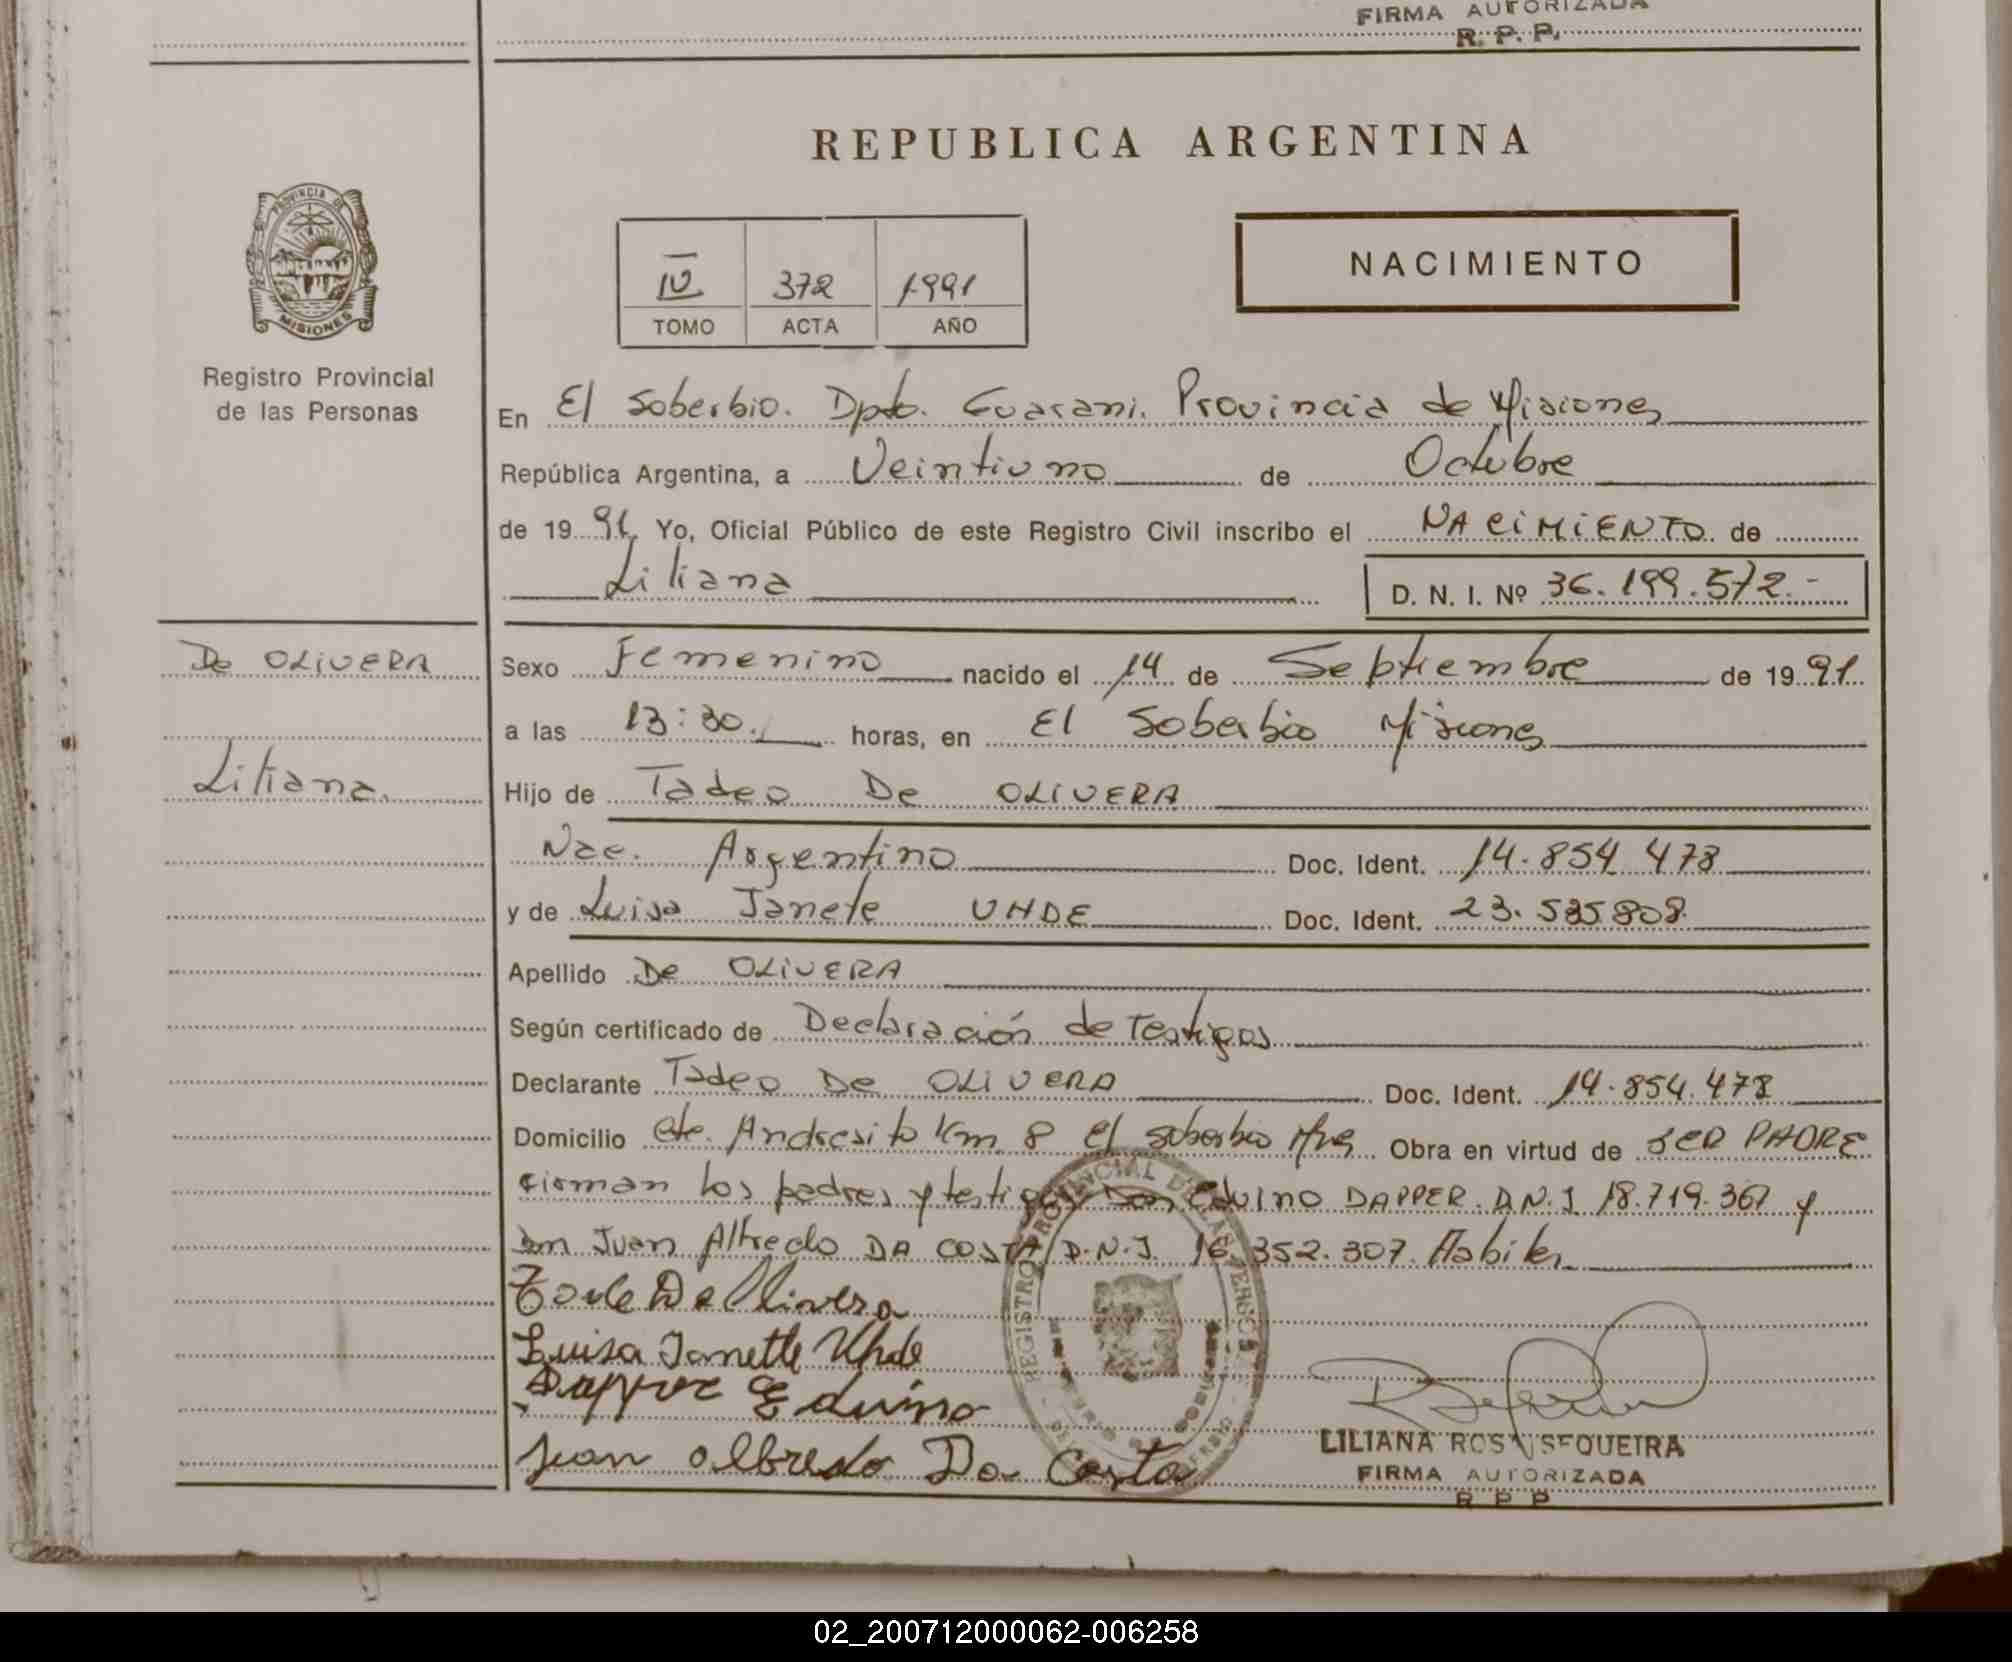 FIRMA AUTORIZADA
R. P. P.
REPUBLICA ARGENTINA
PROVINCIA DE
MISIONES
Registro Provincial
de las Personas
IV 372 1991
TOMO ACTA AÑO
NACIMIENTO
En El Soberbio. Dpto. Guarani. Provincia de Misiones
República Argentina, a Veintiuno de Octubre
de 19 91 Yo, Oficial Público de este Registro Civil inscribo el NACIMIENTO de
Liliana D. N. I. Nº 36.199.572.-
De OLIVERA
Liliana.
Sexo Femenino nacido el 14 de Septiembre de 19 91
a las 13:30. horas, en El Soberbio Misiones
Hijo de Tadeo De OLIVERA
Nac. Argentino Doc. Ident. 14.854.478
y de Luisa Janete UHDE Doc. Ident. 23.535.808
Apellido De OLIVERA
Según certificado de Declaración de Testigos
Declarante Tadeo De OLIVERA Doc. Ident. 14.854.478
Domicilio Cte. Andresito Km 8 El Soberbio Mnes Obra en virtud de SER PADRE
Firman los padres y testigos Don Eduino DAPPER. D.N.I 18.719.367 y
Don Juan Alfredo DA COSTA D.N.I. 16.352.307. Habiles
De Olivera
Luisa Janette Uhde
Dapper Eduino
Juan Albredo Da Costa
REGISTRO PROVINCIAL DE LAS PERSONAS
LILIANA ROSA SEQUEIRA
FIRMA AUTORIZADA
R P P
02_200712000062-006258